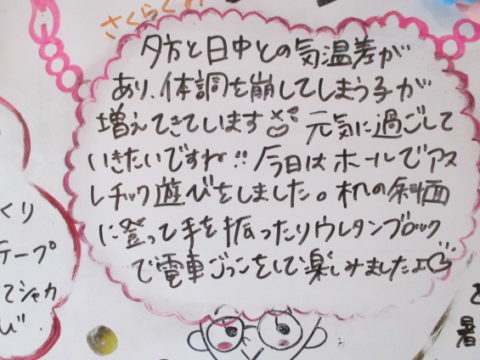 さくらぐみ
夕方と日中との気温差が
あり、体調を崩してしまう子が
増えてきています 元気に過ごして
いきたいですね!! 今日はホールでアス
レチック遊びをしました。机の斜面
に登って手を振ったりウレタンブロック
で電車ごっこをして楽しみましたよ
くり
テープ
てシャカ
び.
と
暑